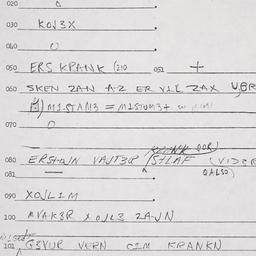 020 0
030 KOJ3X
040 0
050 ERS KRANK (210 051 +
060 SKEN ZAN AZ ER VIL ZAX
MISTAM3 = MISTUM3 +
070 0
080 VAJT3R SHLAF (VID3R
081 OALSO)
090 XOJLIM
100 MVAK3R XOJL3 ZAJN
101 G3VUR VERN CIM KRANKN